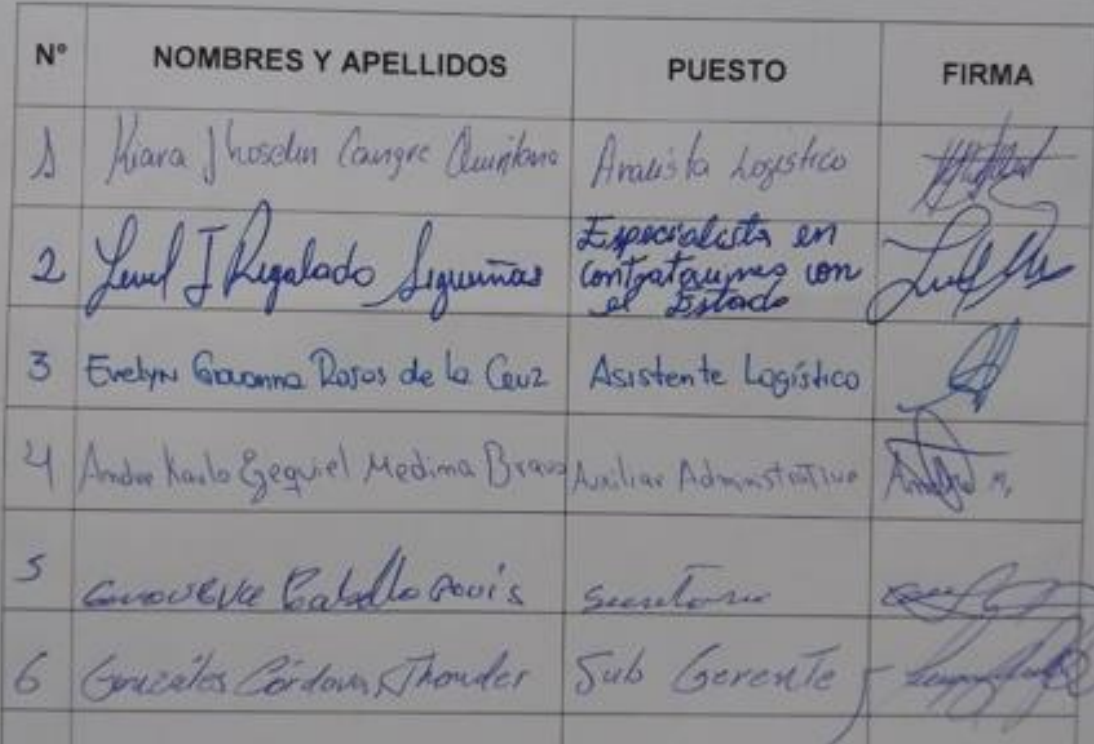 N° NOMBRES Y APELLIDOS PUESTO FIRMA
1 Kiara Jhoselin Quintana Analista Logístico
2 J Regalado Sigueñas Especialista en
contrataciones con
el Estado
3 Evelyn Giovanna Rojas de la Cruz Asistente Logístico
4 Andre Karlo Ezequiel Medina Bravo Auxiliar Administrativo
5 Genoveva Caballo secretaria
6 Gonzáles Córdova Jhonder Sub Gerente